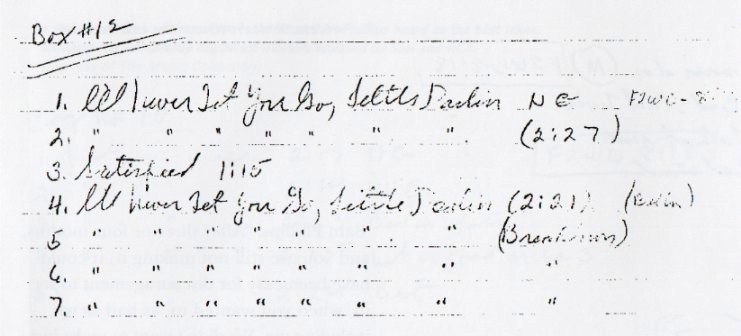 Box #12
1. I'll Never Let You Go, Little Darlin N G
2. " " " " " " " (2:27)
3. Satisfied 1:15
4. I'll Never Let You Go, Little Darlin (2:21)
5 " " " " " " "
6. " " " " " " " "
7. " " " " " " " "